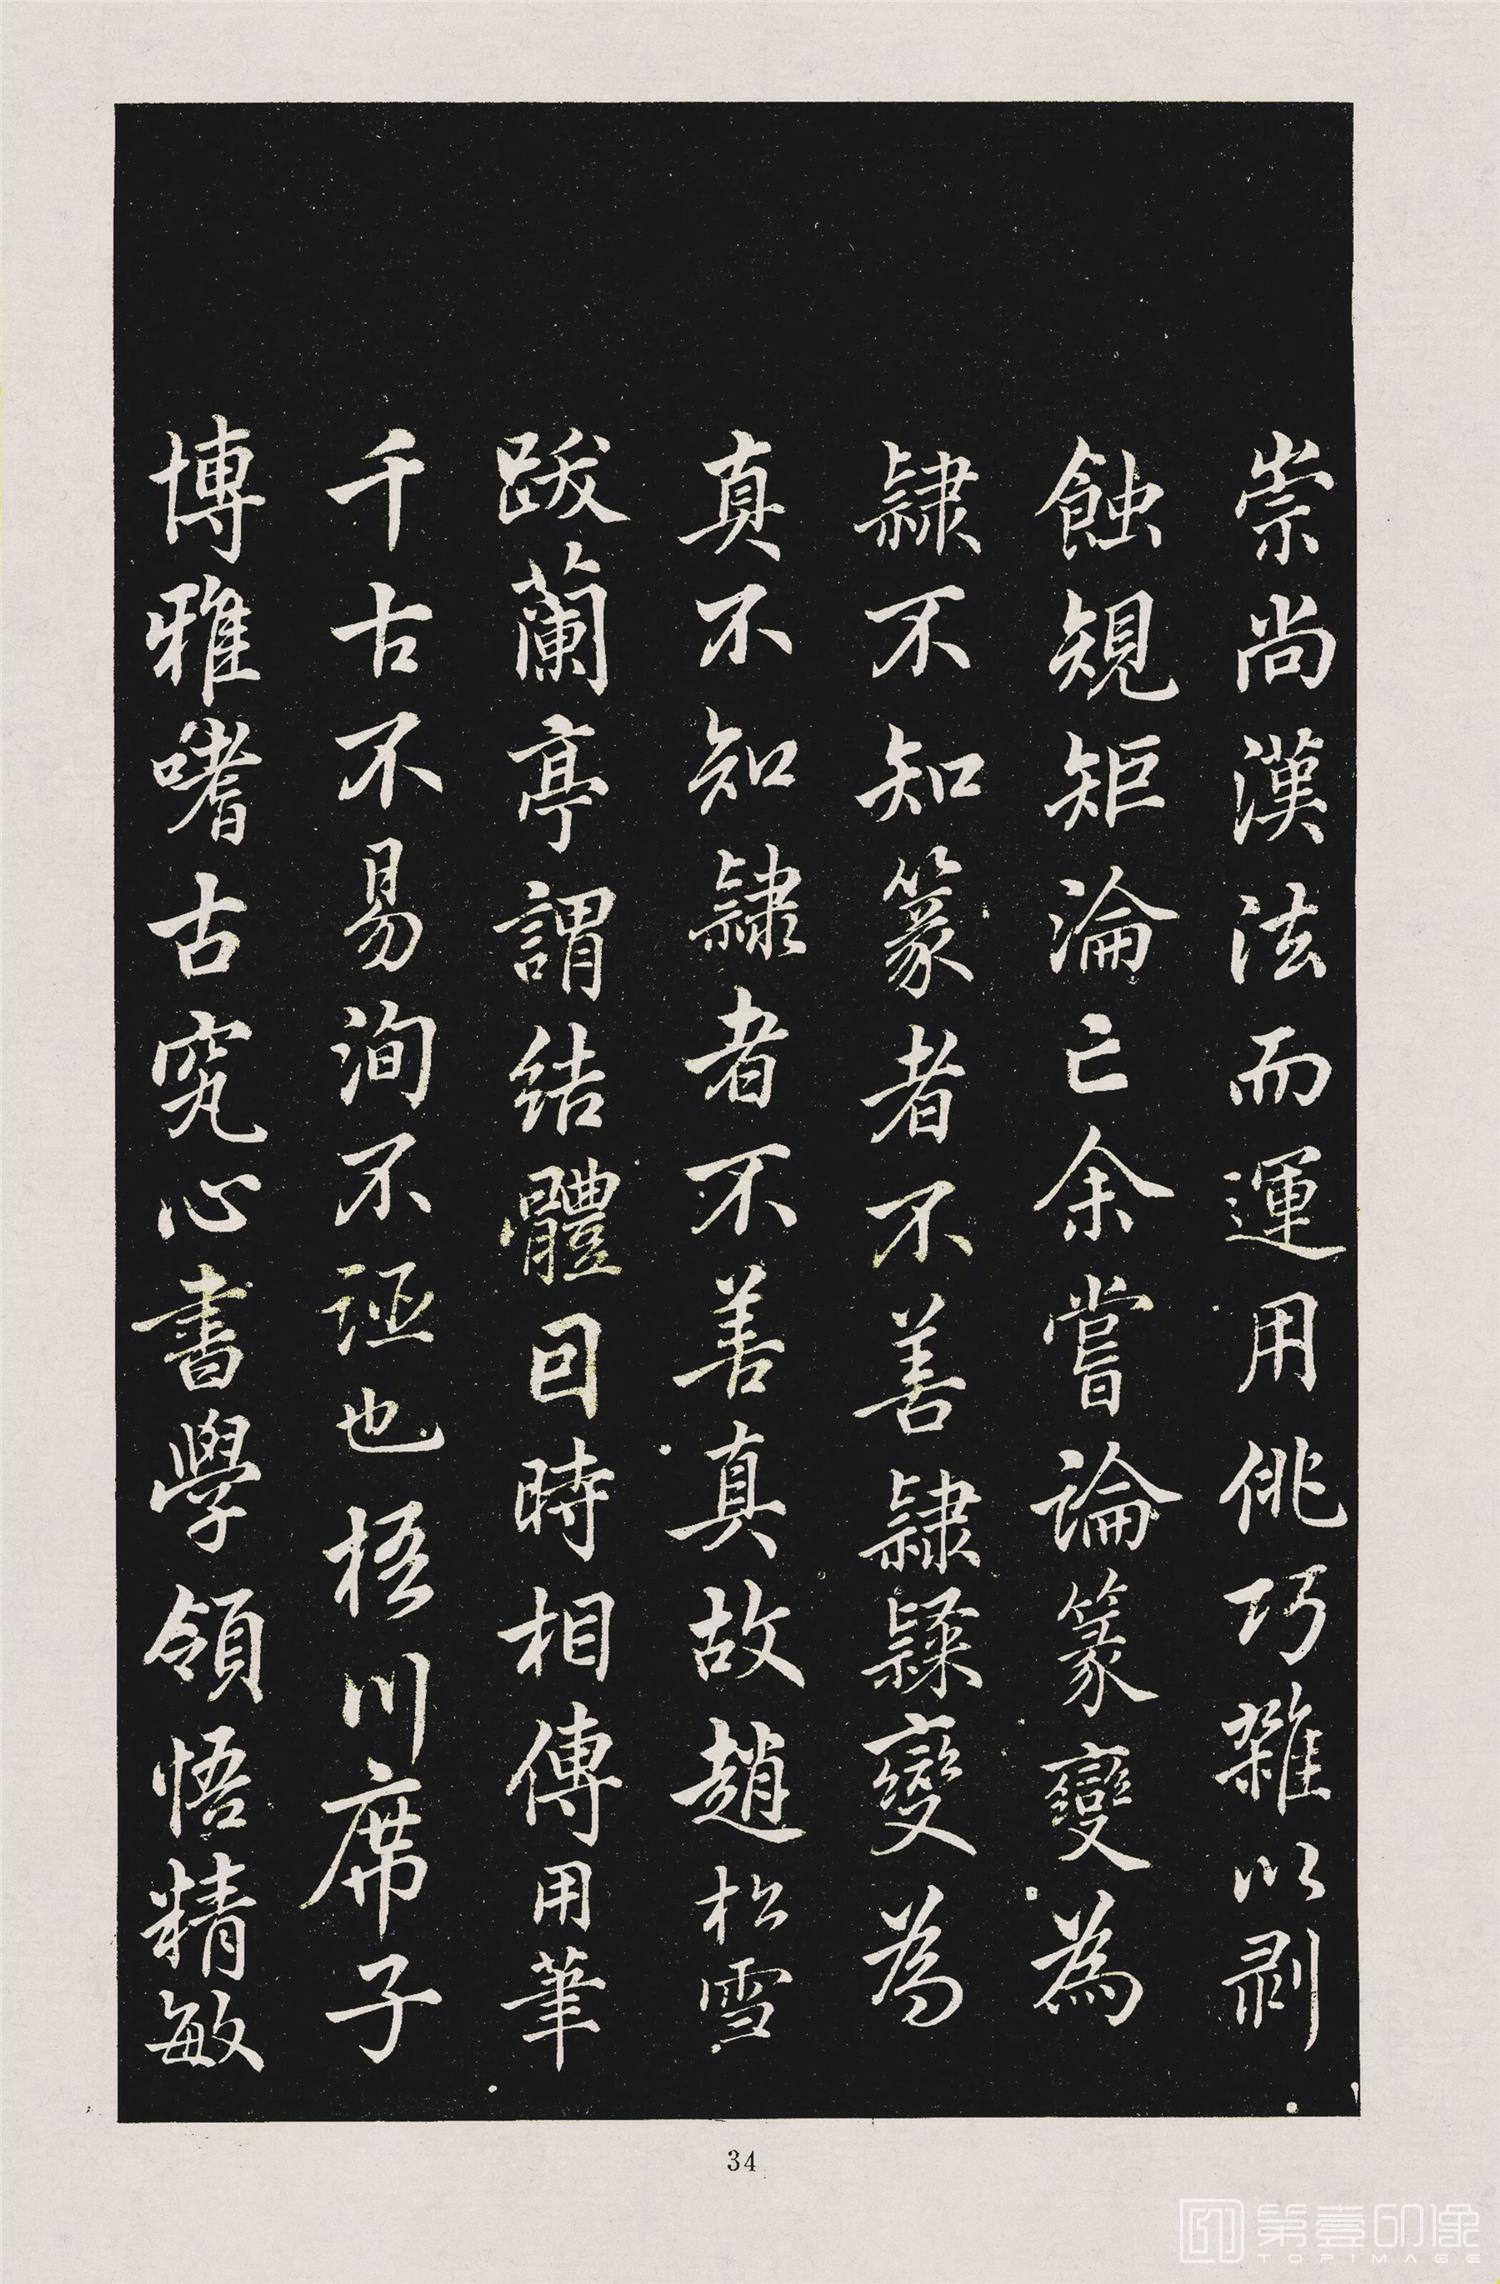 崇尚漢法而運用佻巧雜以剥
蝕規矩淪亡余嘗論篆變為
隸不知篆者不善隸隸變為
真不知隸者不善真故趙松雪
跋蘭亭謂結體因時相傳用筆
千古不易洵不誣也梧川席子
博雅嗜古究心書學領悟精敏
34
第壹印像
TOPIMAGE